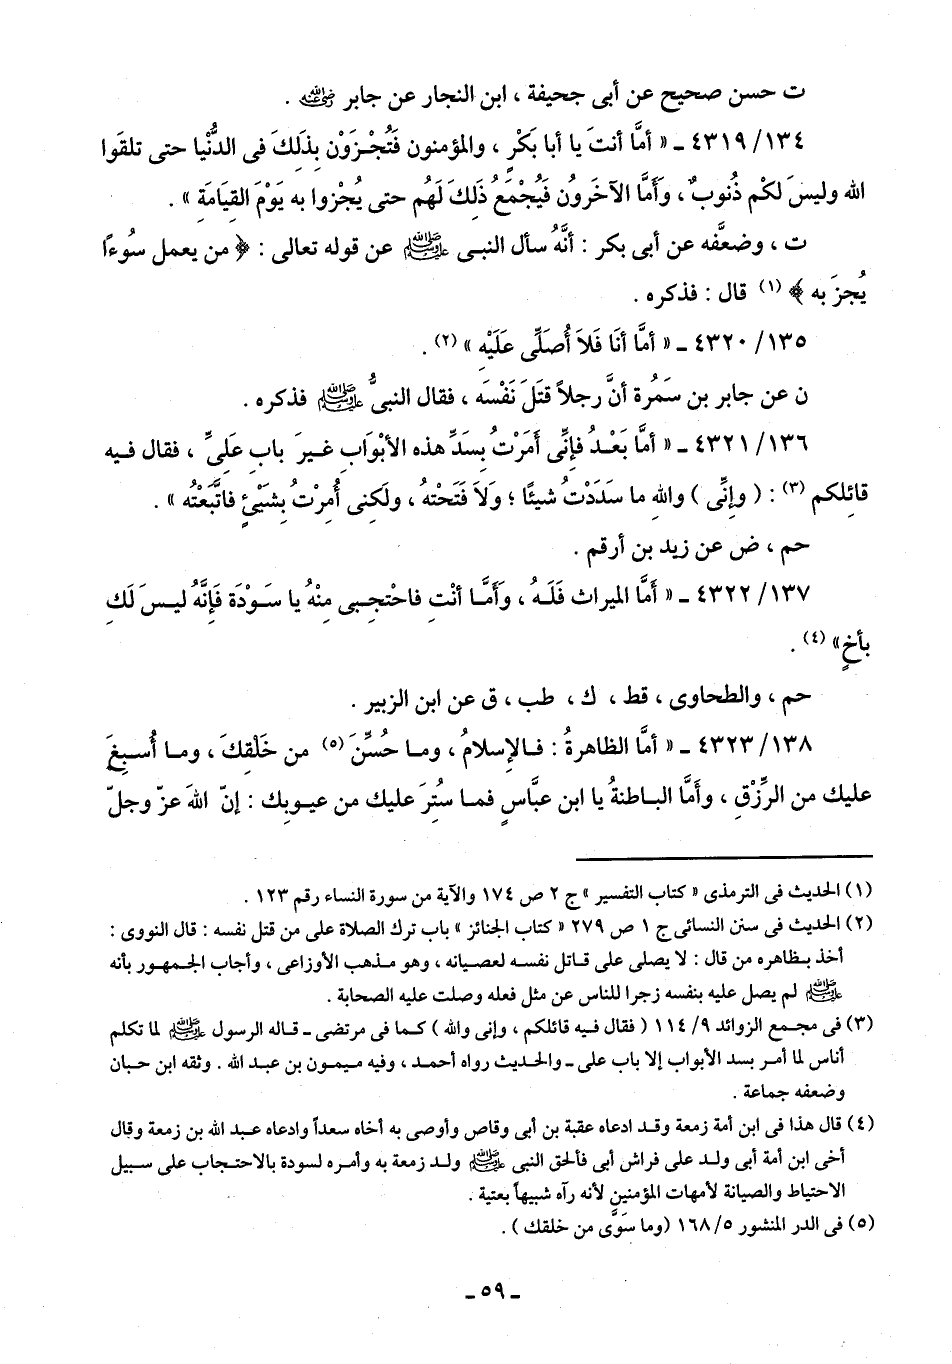 ت حسن صحيح عن أبى جحيفة ، ابن النجار عن جابر رضي الله عنه .
٤٣١٩/١٣٤ ـ « أمَّا أنتَ يا أبا بَكْرٍ ، والمؤمنون فَتُجْزَوْن بِذَلِكَ فى الدُّنْيا حتى تلقَوا
الله وليسَ لكم ذُنوبٌ ، وَأَمَّا الآخَرونُ فَيُجْمَعُ ذَلكَ لَهُم حتى يُجْزوا به يَوْمَ القِيامَةِ » .
ت ، وضعَّفه عن أبى بكر : أنَّهُ سأل النبى ﷺ عن قوله تعالى : ﴿ من يعمل سُوءًا
يُجزَ به ﴾ (١) قال : فذكره .
٤٣٢٠/١٣٥ ـ « أمَّا أنَا فَلاَ أُصَلِّى عَلَيْهِ » (٢) .
ن عن جابر بن سَمُرة أنَّ رجلاً قتَلَ نَفْسَه ، فقال النبىُّ ﷺ فذكره .
٤٣٢١/١٣٦ ـ « أمَّا بَعْدُ فإنِّى أَمَرْتُ بِسَدِّ هذه الأبْوَابِ غيرَ بابِ عَلِىٍّ ، فقال فيه
قائِلكم (٣) : ( وإنِّى ) والله ما سَدَدْتُ شيئًا ؛ وَلاَ فَتَحْتهُ ، ولَكِنى أُمِرْتُ بِشَيْئٍ فاتَّبَعْتُه » .
حم ، ض عن زيد بن أرقم .
٤٣٢٢/١٣٧ ـ « أَمَّا الميراث فَلَهُ ، وَأَمَّا أنْتِ فاحْتجِبى مِنْهُ يا سَوْدَة فَإنَّهُ ليسَ لَكِ
بأخٍ» (٤) .
حم ، والطحاوى ، قط ، ك ، طب ، ق عن ابن الزبير .
٤٣٢٣/١٣٨ ـ « أمَّا الظاهرةُ : فالإسلامُ ، وما حُسِّنَ (٥) من خَلْقِكَ ، وما أُسبِغَ
عليك من الرِّزْقِ ، وأمَّا الباطنةُ يا ابن عبَّاسٍ فما سُتِرَ عليك من عيوبِك : إنّ اللهَ عزّ وجلّ
(١) الحديث فى الترمذى « كتاب التفسير » ج ٢ ص ١٧٤ والآية من سورة النساء رقم ١٢٣ .
(٢) الحديث فى سنن النسائى ج ١ ص ٢٧٩ « كتاب الجنائز » باب ترك الصلاة على من قتل نفسه : قال النووى :
أخذ بظاهره من قال : لا يصلى على قاتل نفسه لعصيانه ، وهو مذهب الأوزاعى ، وأجاب الجمهور بأنه
ﷺ لم يصل عليه بنفسه زجرا للناس عن مثل فعله وصلت عليه الصحابة .
(٣) فى مجمع الزوائد ٩/ ١١٤ ( فقال فيه قائلكم ، وإنى والله ) كما فى مرتضى ـ قاله الرسول ﷺ لما تكلم
أناس لما أمر بسد الأبواب إلا باب على ـ والحديث رواه أحمد ، وفيه ميمون بن عبد الله . وثقه ابن حبان
وضعفه جماعة .
(٤) قال هذا فى ابن أمة زمعة وقد ادعاه عقبة بن أبى وقاص وأوصى به أخاه سعداً وادعاه عبد الله بن زمعة وقال
أخى ابن أمة أبى ولد على فراش أبى فألحق النبى ﷺ ولد زمعة به وأمره لسودة بالاحتجاب على سبيل
الاحتياط والصيانة لأمهات المؤمنين لأنه رآه شبيهاً بعتبة .
(٥) فى الدر المنشور ٥/ ١٦٨ (وما سَوَّى من خلقك ) .
ـ ٥٩ ـ